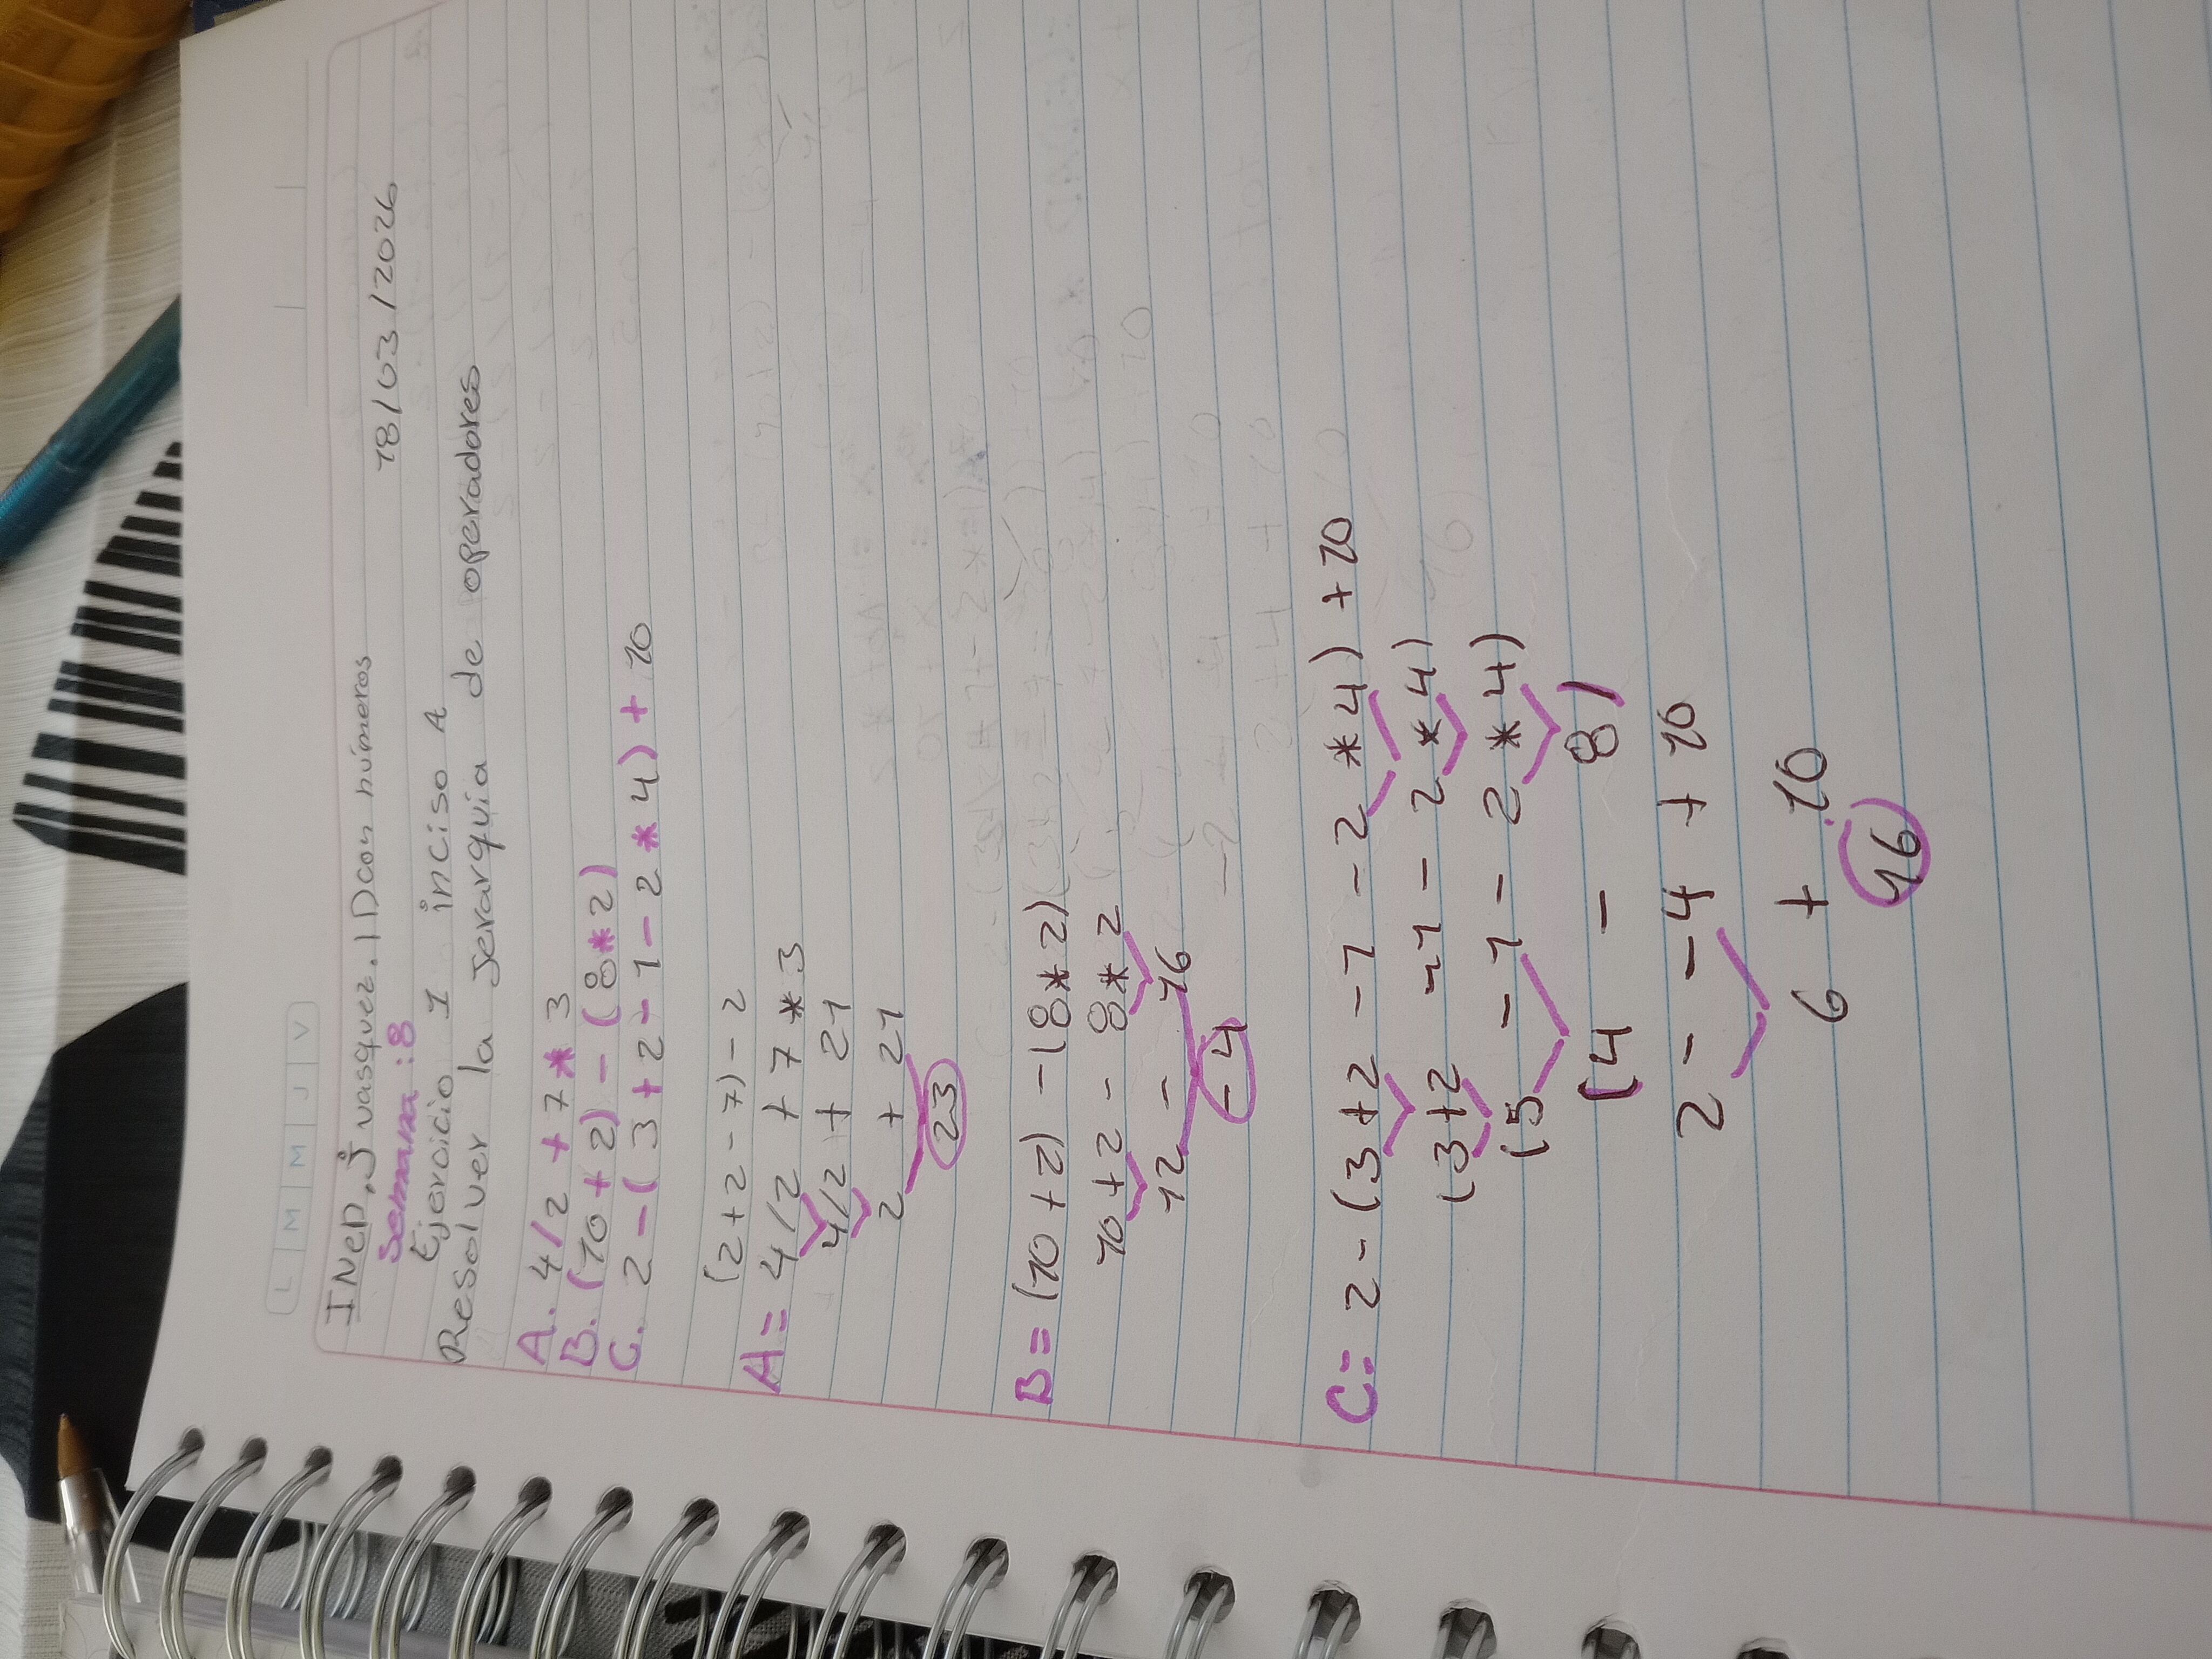 L M M J V
INED, J vasquez. 1D con números
Semana: 8 18/03/2026
Ejercicio 1 inciso A
Resolver la Jerarquía de operadores
A. 4/2 + 7 * 3
B. (10 + 2) - (8 * 2)
C. 2 - (3 + 2 - 1 - 2 * 4) + 10
(2+2-7)-2
A = 4/2 + 7 * 3
4/2 + 21
2 + 21
23
B = (10 + 2) - (8 * 2)
10 + 2 - 8 * 2
12 - 16
-4
C = 2 - (3 + 2 - 1 - 2 * 4) + 10
(3 + 2 - 1 - 2 * 4)
(5 - 1 - 2 * 4)
(4 - 8)
2 - -4 + 10
6 + 10
16